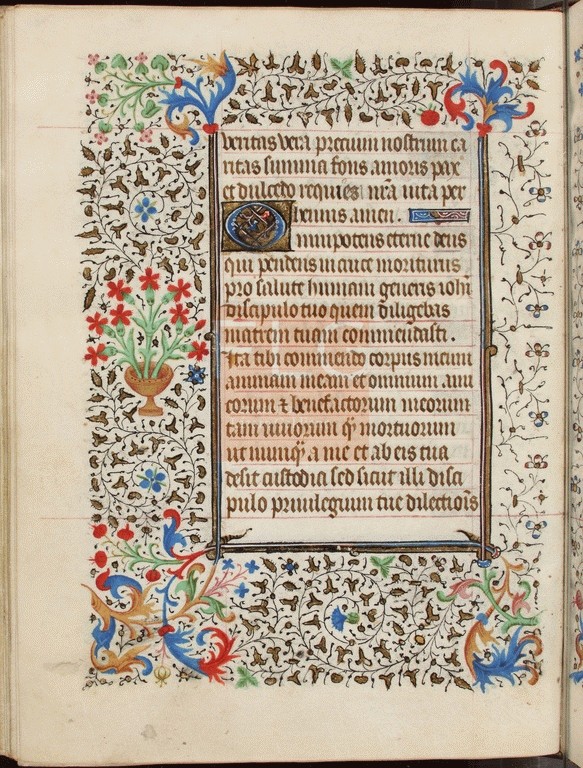 veritas vera precium nostrum ca
ritas summa fons amoris pax
et dulcedo requies nr̄a vita per
hennis amen.
Omnipotens eterne deus
qui pendens in cruce moriturus
pro salute humani generis iohi
discipulo tuo quem diligebas
matrem tuam commendasti.
Ita tibi commendo corpus meum
animam meam et omnium ami
corum ⁊ benefactorum meorum
tam vivorum q̄ mortuorum
ut nunq̄ a me et ab eis tua
desit custodia sed sicut illi disci
pulo privilegium tue dilectiōis